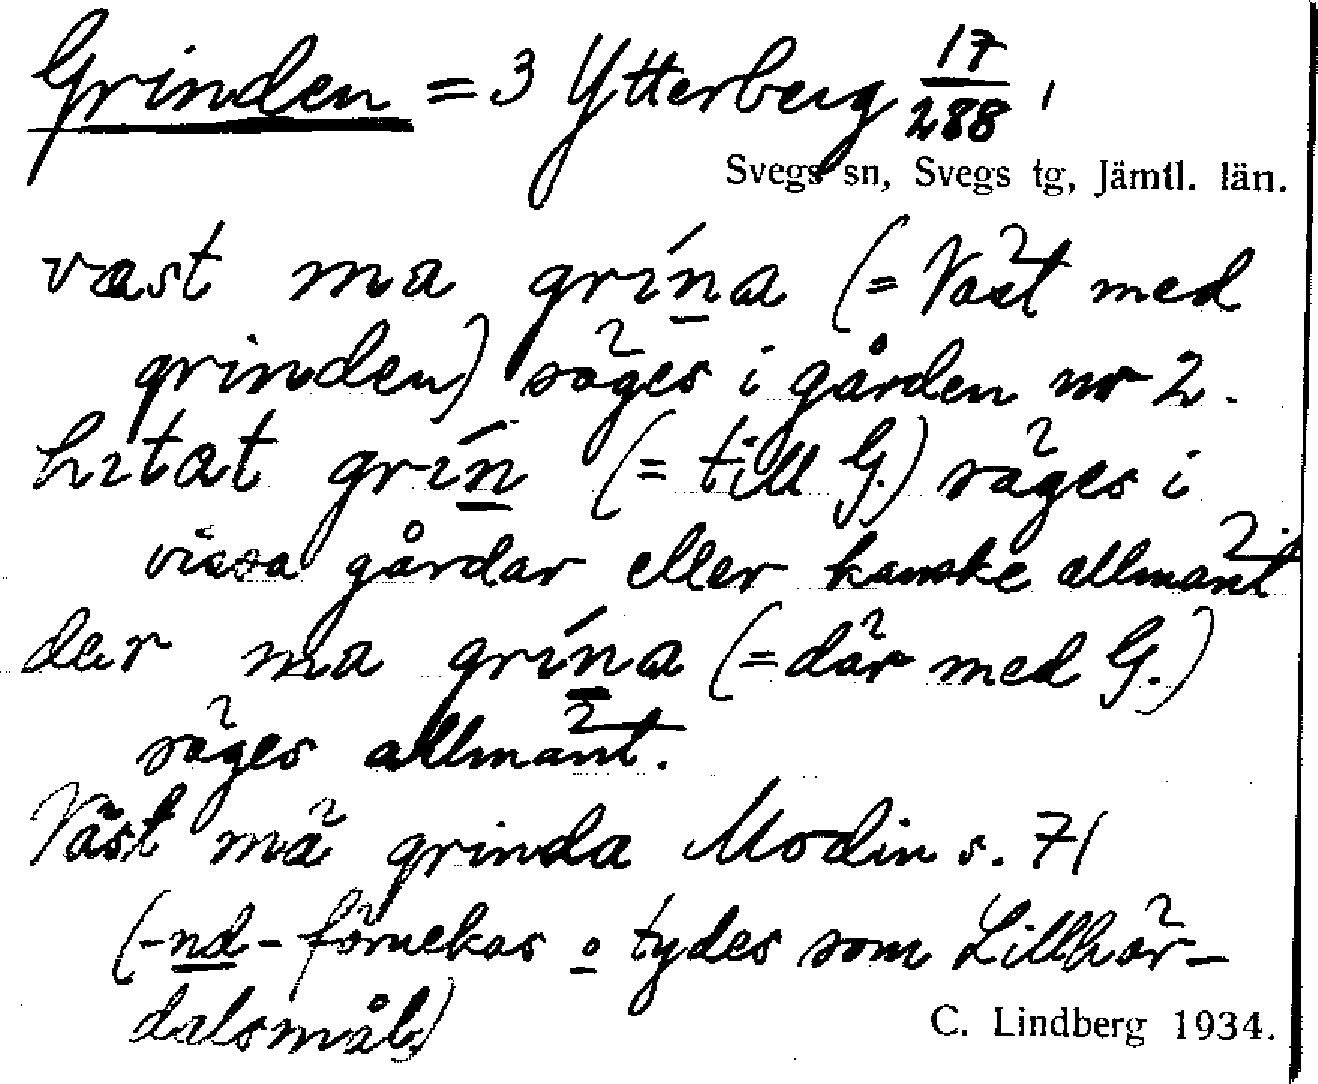 Grinden = 3 Ytterberg 17/288
Svegs sn, Svegs tg, Jämtl. län.
væst ma grína (= Väst med
grinden) säges i gården nr 2.
hıtat grín (= till G.) säges i
vissa gårdar eller kanske allmänt.
der ma grína (= där med G.)
säges allmänt.
Väst mä grinda Modin s. 71
(-nd- förnekas o tydes som Lillhär-
dalsmål)
C. Lindberg 1934.